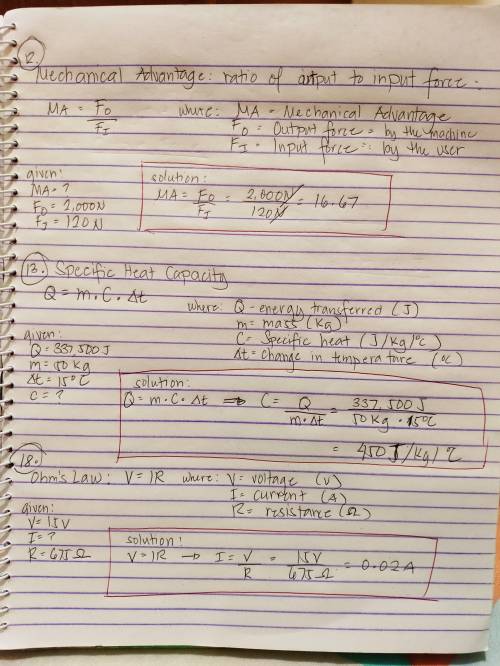 12.
Mechanical Advantage: ratio of output to input force:
MA = Fo/FI where: MA = Mechanical Advantage
Fo = Output force = by the machine
FI = Input force = by the user
given:
MA = ?
Fo = 2,000N
FI = 120N
solution:
MA = Fo/FI = 2,000N/120N = 16.67
13. Specific Heat Capacity
Q = m·C·Δt
where: Q - energy transferred (J)
m = mass (kg)
C = Specific heat (J/kg/°C)
Δt = change in temperature (°C)
given:
Q = 337,500 J
m = 50 kg
Δt = 15°C
C = ?
solution:
Q = m·C·Δt ⇒ C = Q/m·Δt = 337,500 J/50 kg·15°C
= 450 J/kg/°C
18.
Ohm's Law: V = IR where: V = voltage (V)
I = current (A)
R = resistance (Ω)
given:
V = 15V
I = ?
R = 675 Ω
solution:
V = IR → I = V/R = 15V/675Ω = 0.02A